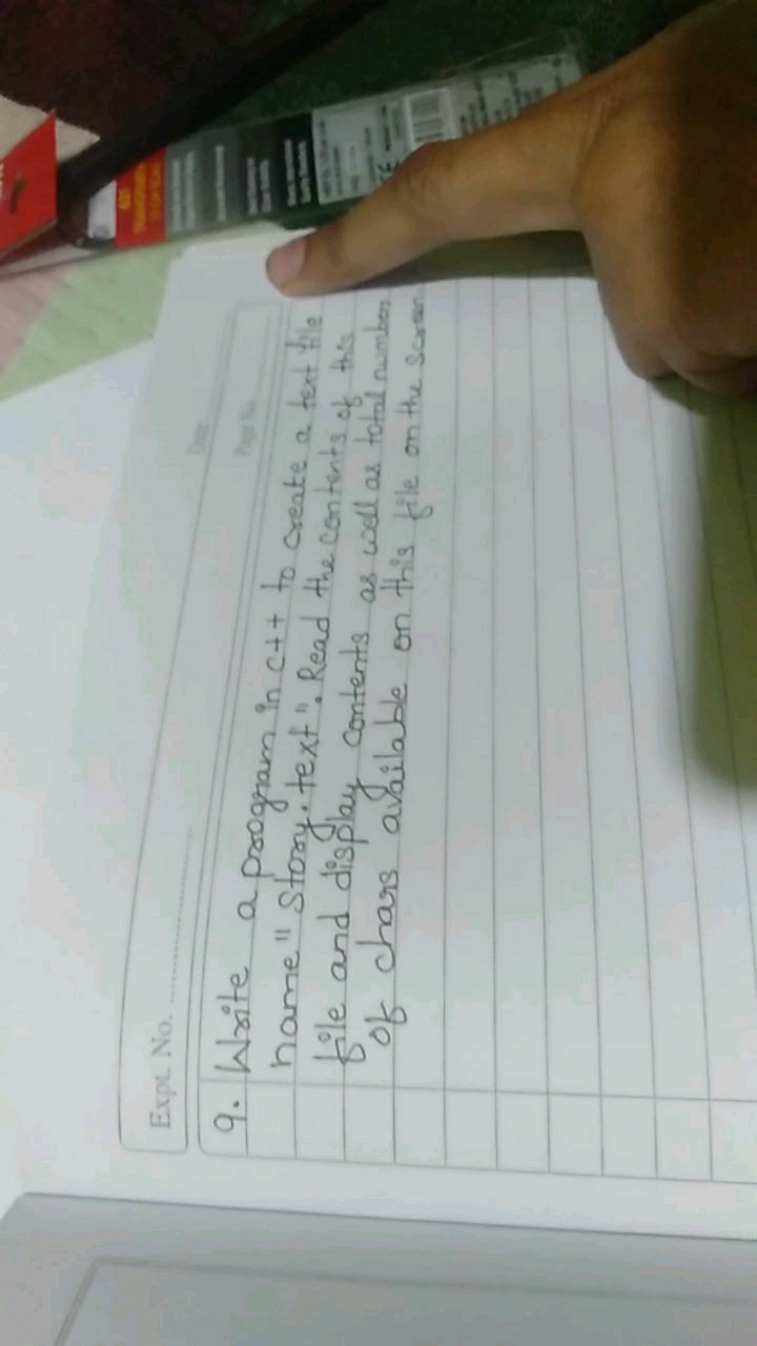 Date
Page No.
Expt. No.
9. Write a program in c++ to create a text file
name " Story.text". Read the contents of this
file and display contents as well as total number
of chars available on this file on the screen